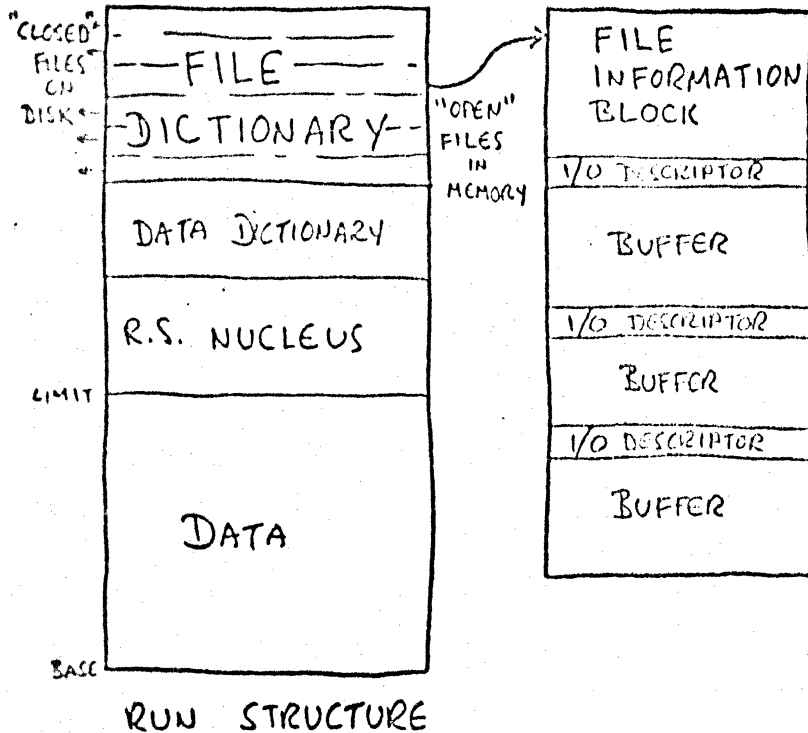 "CLOSED"
FILES
ON
DISK
FILE
DICTIONARY
"OPEN"
FILES
IN
MEMORY
DATA DICTIONARY
R.S. NUCLEUS
LIMIT
DATA
BASE
RUN STRUCTURE
FILE
INFORMATION
BLOCK
I/O DESCRIPTOR
BUFFER
I/O DESCRIPTOR
BUFFER
I/O DESCRIPTOR
BUFFER